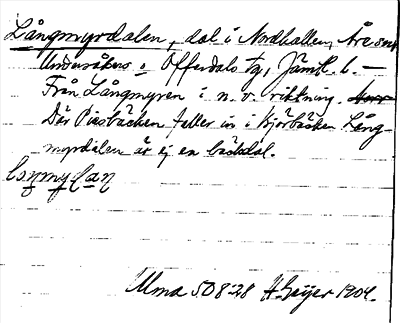 Långmyrdalen, dal i Nordhallen, Åre sn,
Undersåkers o. Offerdals tg, Jämtl. l. —
Från Långmyren i n. v. riktning.
Där Piesbäcken faller in i Bjørbäcken Lång-
myrdalen är ej en bäckdal.
Ulma 508:28 H. Geijer 1904.